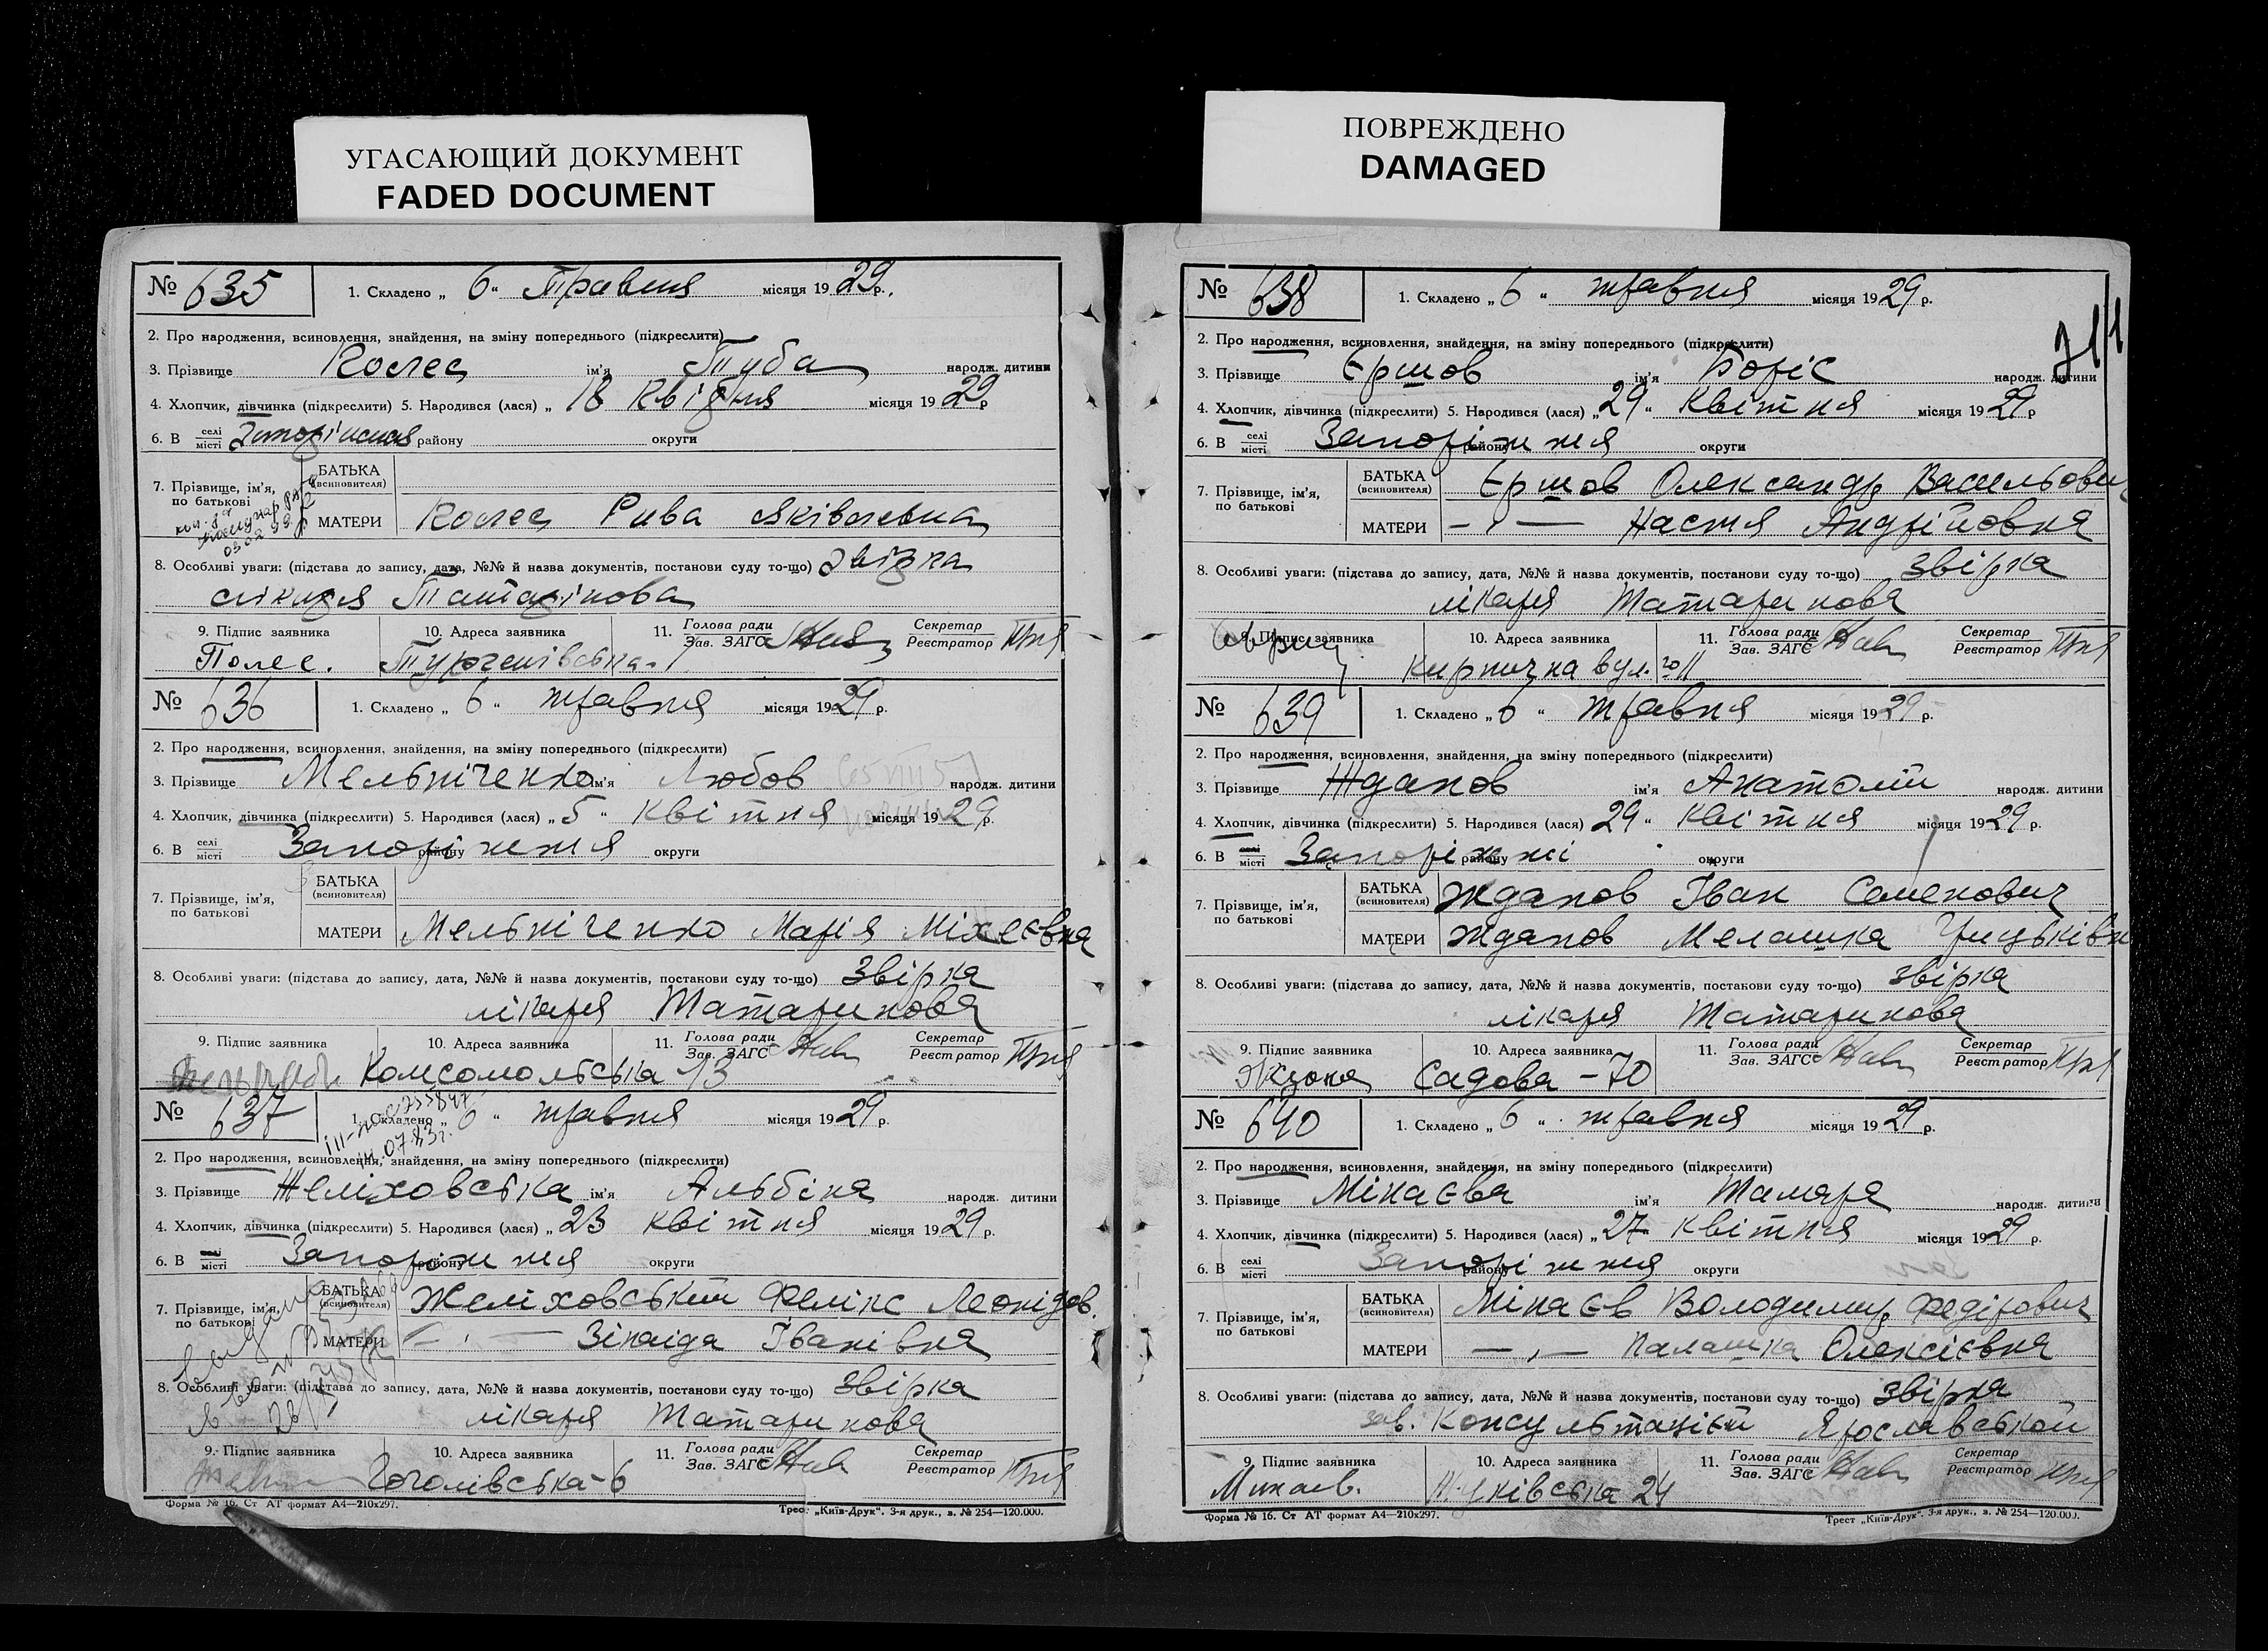 УГАСАЮЩИЙ ДОКУМЕНТ
FADED DOCUMENT
ПОВРЕЖДЕНО
DAMAGED
№ 635 1. Складено „ 6 “ Травня місяця 1929 р.
2. Про народження, всиновлення, знайдення, на зміну попереднього (підкреслити)
3. Прізвище Колес ім'я Туба народж. дитини
4. Хлопчик, дівчинка (підкреслити) 5. Народився (лася) „ 18 Квітня місяця 1929 р
6. В селі місті Запоріжжя району округи
7. Прізвище, ім'я, по батькові БАТЬКА (всиновителя)
МАТЕРИ Колес Рива Яківлевна
8. Особливі уваги: (підстава до запису, дата, №№ й назва документів, постанови суду то-що) звірка
лікаря Татарінова
9. Підпис заявника 10. Адреса заявника 11. Голова ради Зав. ЗАГС Секретар Реєстратор
Полес. Тургенівська-
№ 636 1. Складено „ 6 “ травня місяця 1929 р.
2. Про народження, всиновлення, знайдення, на зміну попереднього (підкреслити)
3. Прізвище Мельніченко ім'я Любов народж. дитини
4. Хлопчик, дівчинка (підкреслити) 5. Народився (лася) „ 5 “ Квітня місяця 1929 р.
6. В селі місті Запоріжжя району округи
7. Прізвище, ім'я, по батькові БАТЬКА (всиновителя)
МАТЕРИ Мельніченко Марія Міхеєвна
8. Особливі уваги: (підстава до запису, дата, №№ й назва документів, постанови суду то-що) Звірка
лікаря Татаринова
9. Підпис заявника 10. Адреса заявника 11. Голова ради Зав. ЗАГС Секретар Реєстратор
Комсомольська 13
№ 637 1. Складено „ 6 “ травня місяця 1929 р.
2. Про народження, всиновлення, знайдення, на зміну попереднього (підкреслити)
3. Прізвище Желіховська ім'я Альбіна народж. дитини
4. Хлопчик, дівчинка (підкреслити) 5. Народився (лася) „ 23 квітня місяця 1929 р.
6. В селі місті Запоріжжя району округи
7. Прізвище, ім'я, по батькові БАТЬКА (всиновителя) Желіховський Фелікс Леонідов.
МАТЕРИ — „ — Зінаіда Іванівна
8. Особливі уваги: (підстава до запису, дата, №№ й назва документів, постанови суду то-що) Звірка
лікаря Татаринова
9. Підпис заявника 10. Адреса заявника 11. Голова ради Зав. ЗАГС Секретар Реєстратор
Гоголівська-6
Форма № 16. Ст АТ формат А4—210x297. Трест „Київ-Друк“. 3-я друк., з. № 254—120.000.
№ 638 1. Складено „ 6 “ травня місяця 1929 р.
2. Про народження, всиновлення, знайдення, на зміну попереднього (підкреслити)
3. Прізвище Єршов ім'я Боріс народж. дитини
4. Хлопчик, дівчинка (підкреслити) 5. Народився (лася) „ 29 “ Квітня місяця 1929 р
6. В селі місті Запоріжжя району округи
7. Прізвище, ім'я, по батькові БАТЬКА (всиновителя) Єршов Олександр Васильович
МАТЕРИ — „ — Настя Андрійовна
8. Особливі уваги: (підстава до запису, дата, №№ й назва документів, постанови суду то-що) Звірка
лікаря Татаринова
9. Підпис заявника 10. Адреса заявника 11. Голова ради Зав. ЗАГС Секретар Реєстратор
Кирпична вул.
№ 639 1. Складено „ 6 “ травня місяця 1929 р.
2. Про народження, всиновлення, знайдення, на зміну попереднього (підкреслити)
3. Прізвище Жданов ім'я Анатолій народж. дитини
4. Хлопчик, дівчинка (підкреслити) 5. Народився (лася) 29 “ Квітня місяця 1929 р.
6. В селі місті Запоріжжі району округи
7. Прізвище, ім'я, по батькові БАТЬКА (всиновителя) Жданов Іван Семенович
МАТЕРИ Жданов Мелашка
8. Особливі уваги: (підстава до запису, дата, №№ й назва документів, постанови суду то-що) звірка
лікаря Татаринова
9. Підпис заявника 10. Адреса заявника 11. Голова ради Зав. ЗАГС Секретар Реєстратор
Садова - 70
№ 640 1. Складено „ 6 “ травня місяця 1929 р.
2. Про народження, всиновлення, знайдення, на зміну попереднього (підкреслити)
3. Прізвище Мінаєва ім'я Тамара народж. дитини
4. Хлопчик, дівчинка (підкреслити) 5. Народився (лася) „ 27 Квітня місяця 1929 р.
6. В селі місті Запоріжжя району округи
7. Прізвище, ім'я, по батькові БАТЬКА (всиновителя) Мінаєв Володимир Федірович
МАТЕРИ — „ — Палашка Олексієвна
8. Особливі уваги: (підстава до запису, дата, №№ й назва документів, постанови суду то-що) Звірка
зав. Консультацієй Ярославськой
9. Підпис заявника 10. Адреса заявника 11. Голова ради Зав. ЗАГС Секретар Реєстратор
Минаев. Жуківська 24
Форма № 16. Ст АТ формат А4—210x297. Трест „Київ-Друк“. 3-я друк., з. № 254—120.000.